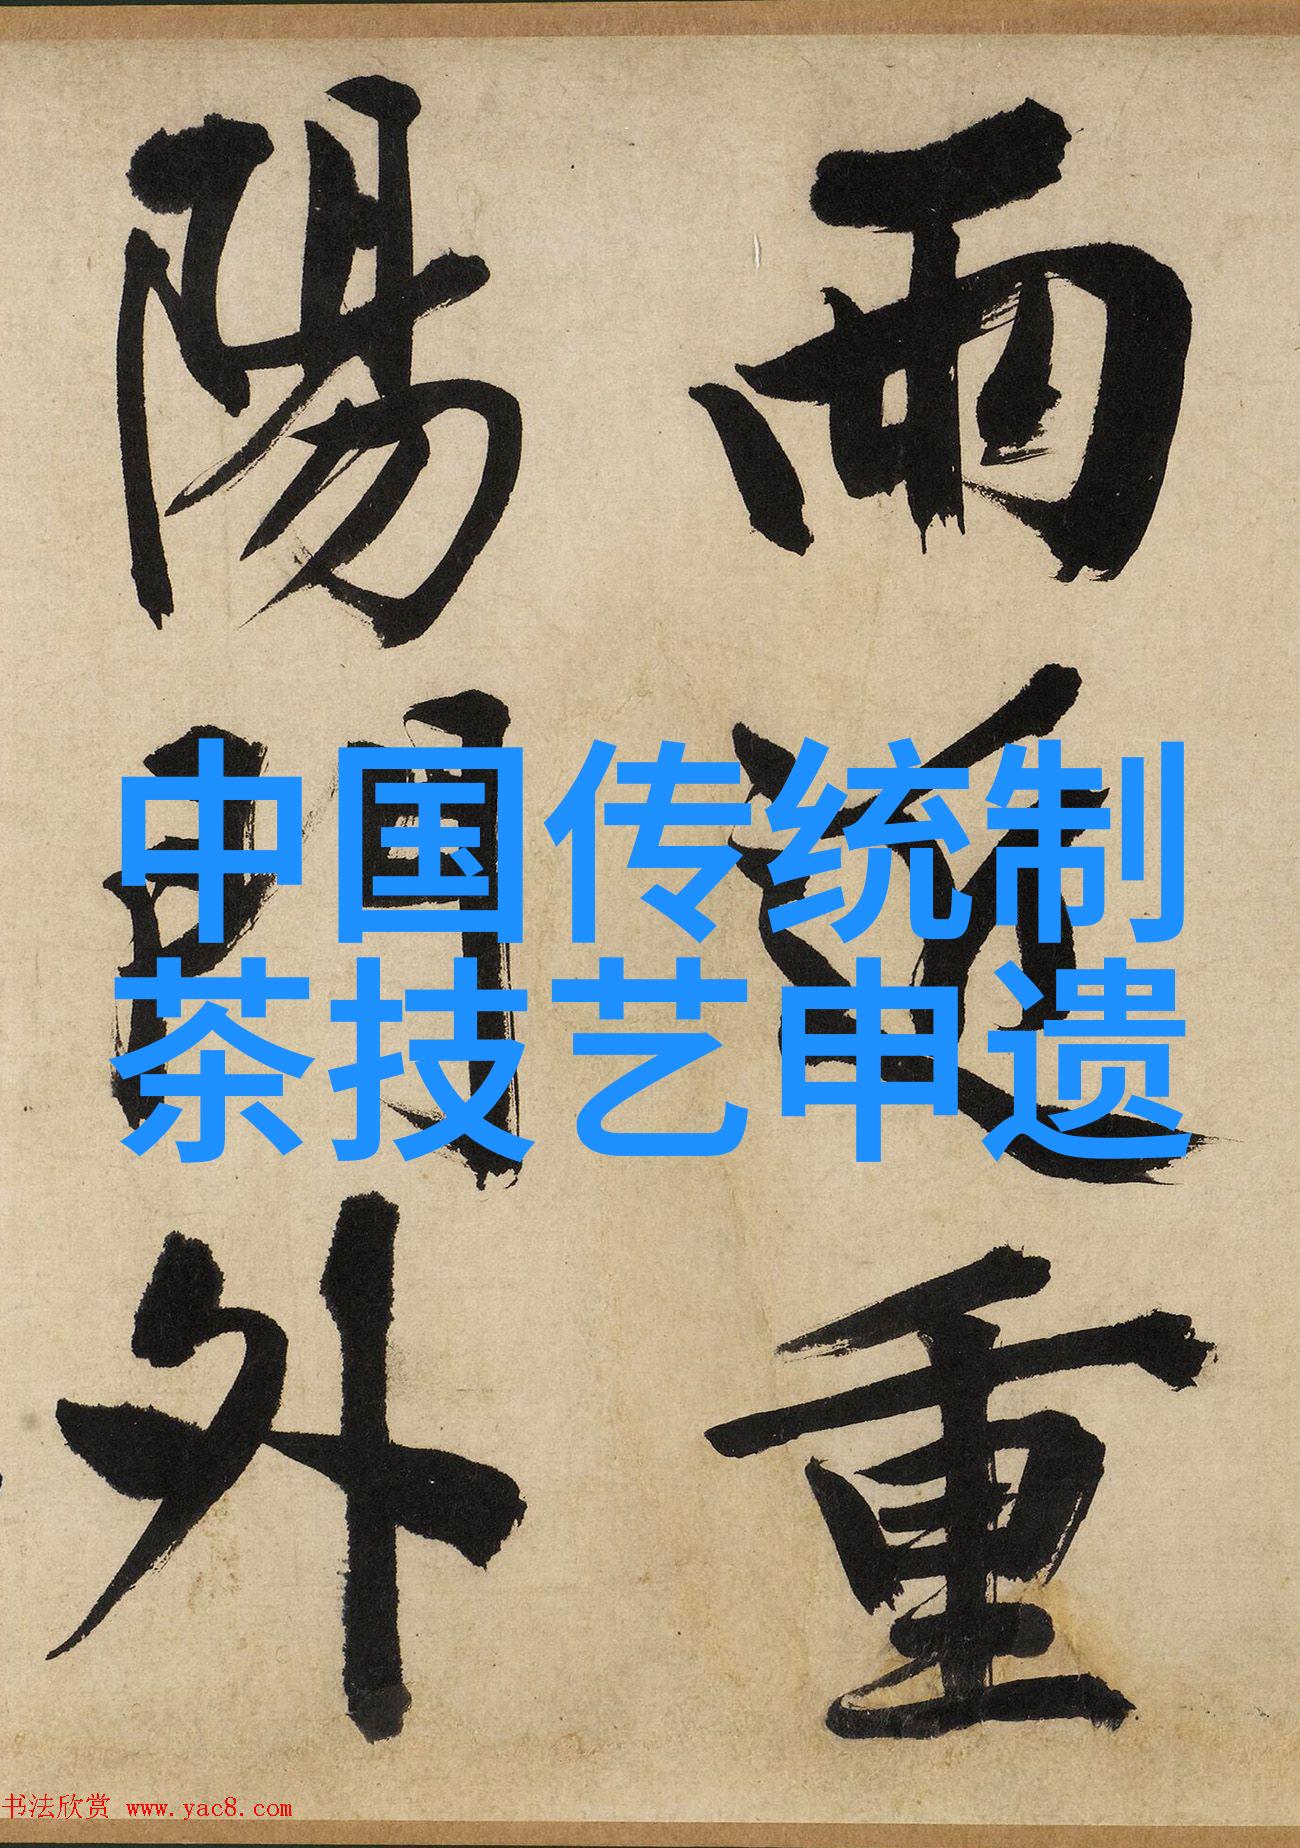 雨重
陽外
中国传统制
茶技艺申遗
书法欣赏 www.yac8.com